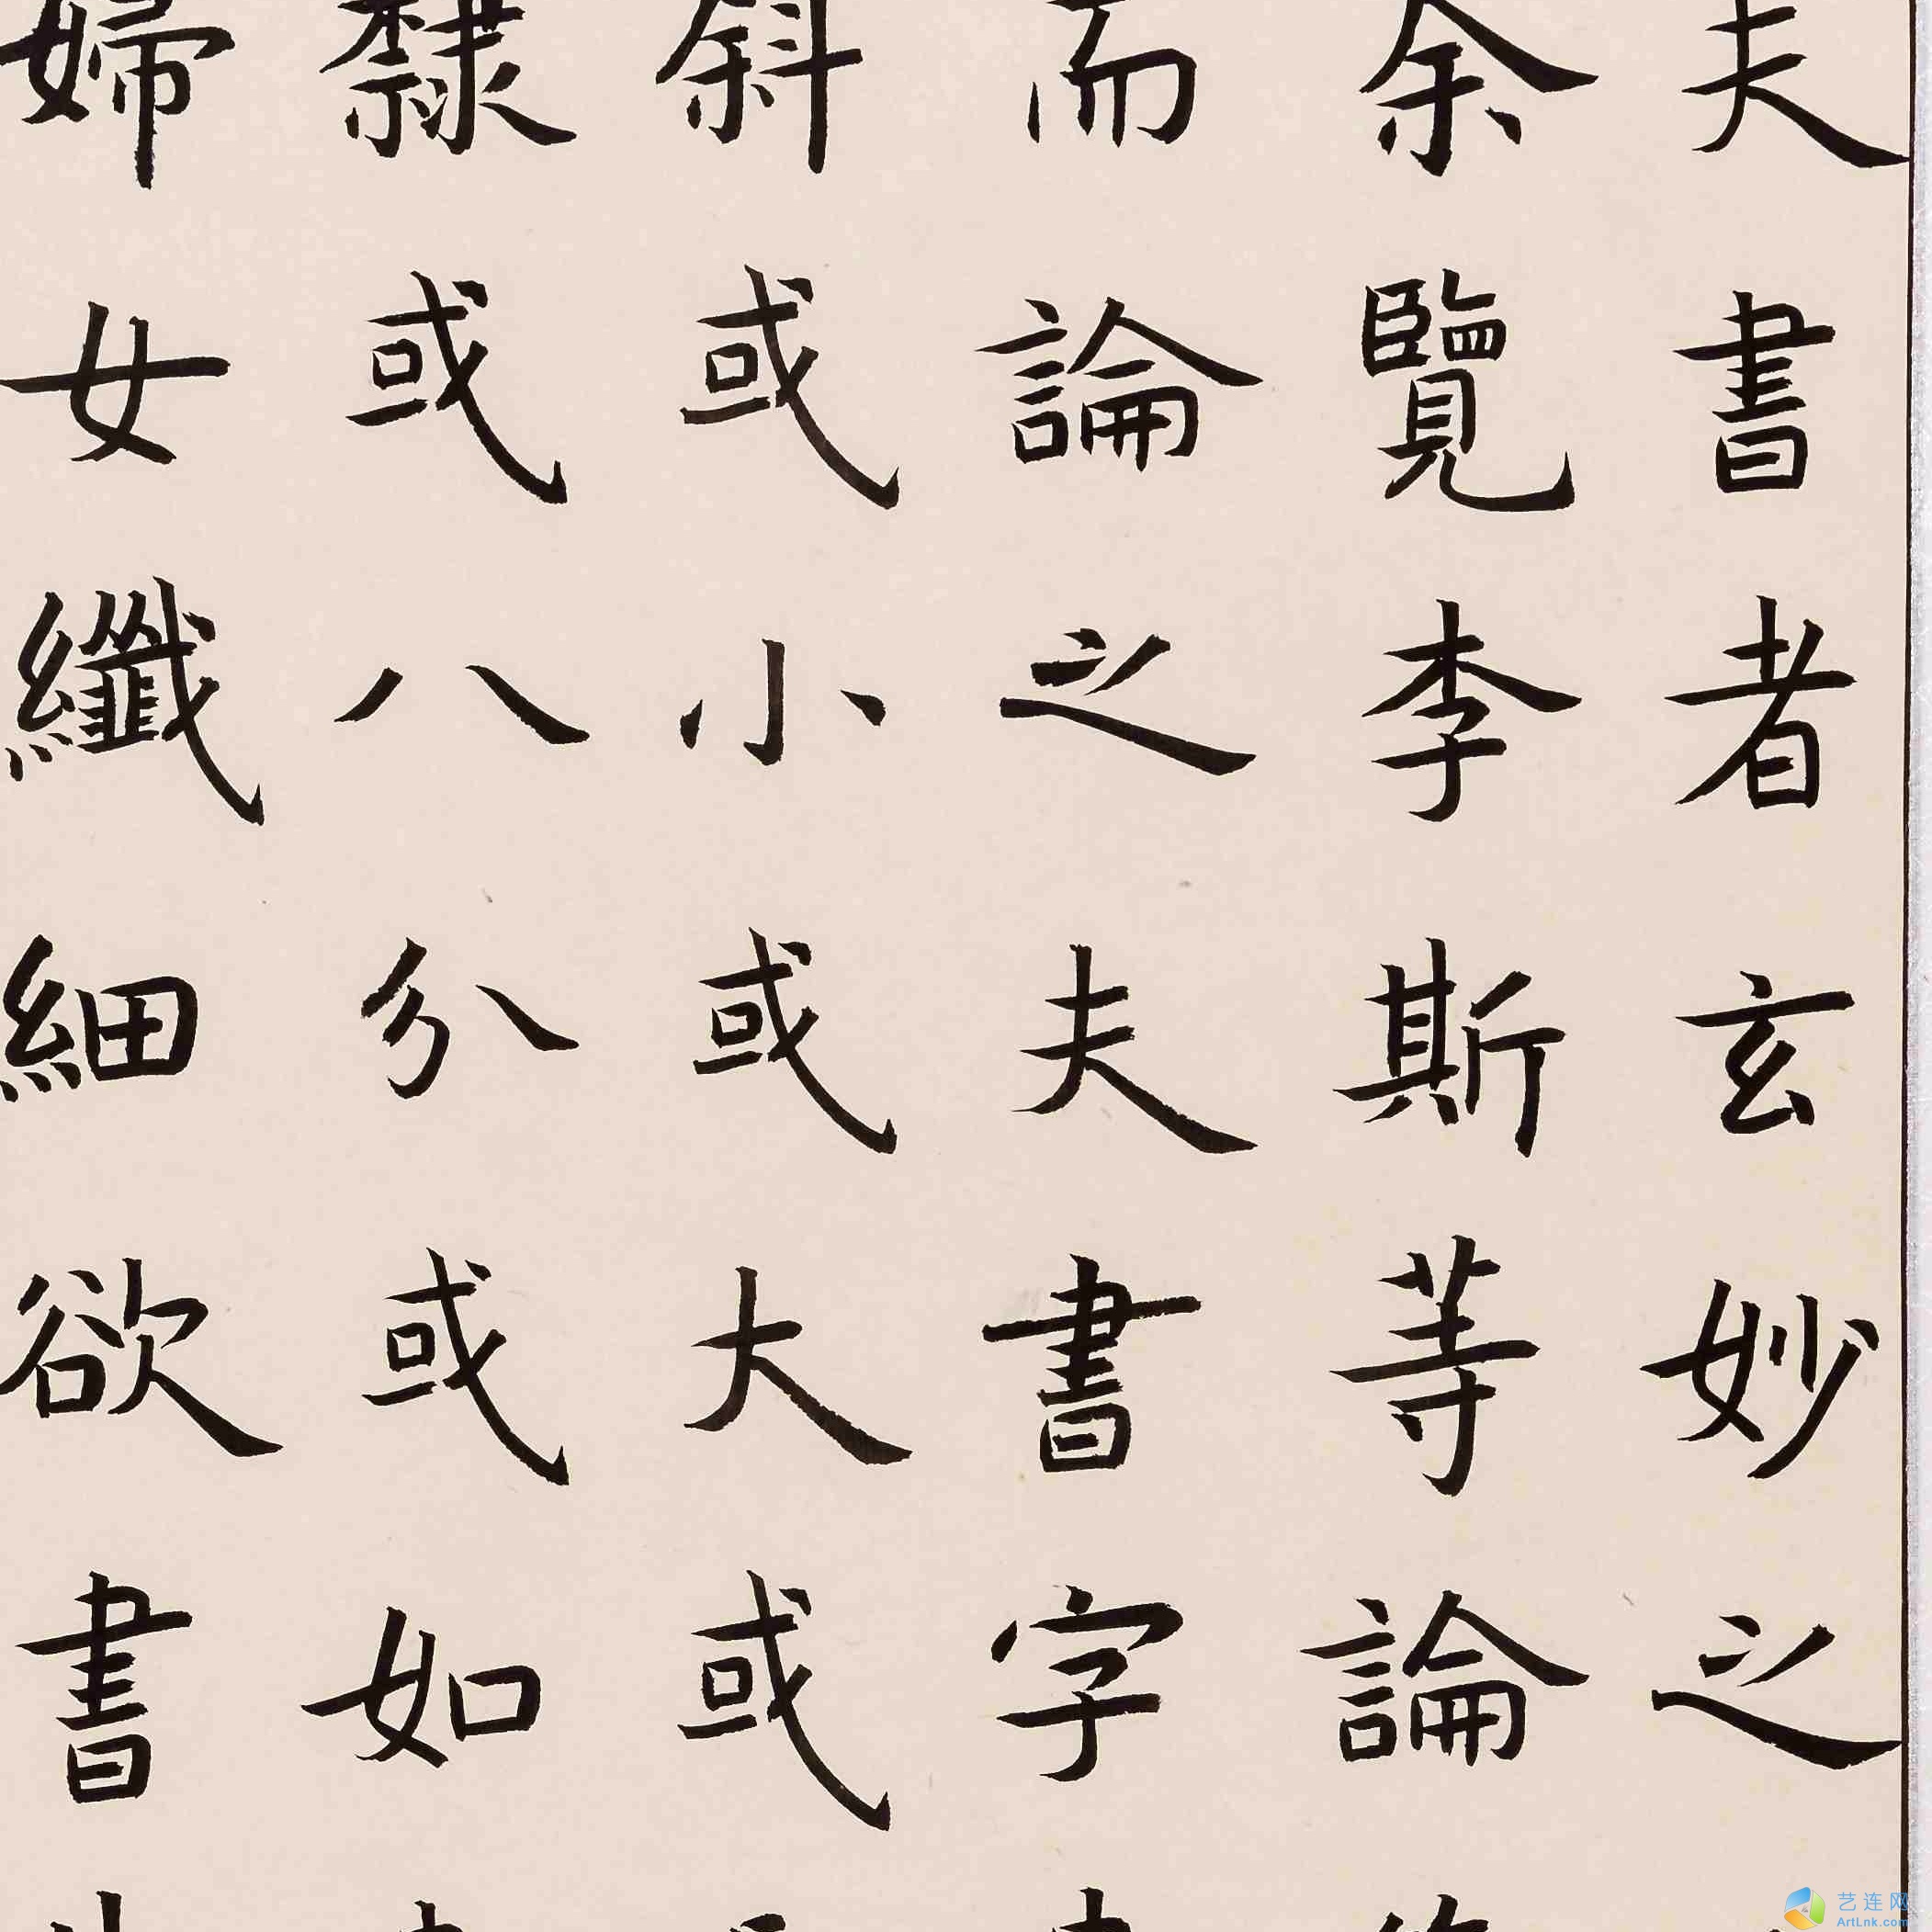 夫書者玄妙之
余覽李斯等論
而論之夫書字
斜或小或大或
隸或八分或如
婦女纖細欲書
艺连网
ArtLnk.com